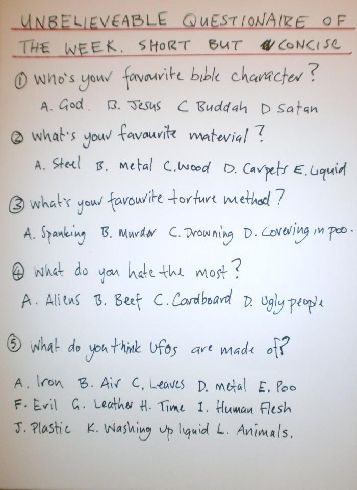 UNBELIEVEABLE QUESTIONAIRE OF
THE WEEK. SHORT BUT CONCISE
① Who's your favourite bible character?
A. God. B. Jesus C Buddah D Satan
② what's your favourite material?
A. Steel B. metal C. wood D. Carpets E. Liquid
③ what's your favourite torture method?
A. Spanking B. Murder C. Drowning D. Covering in poo.
④ what do you hate the most?
A. Aliens B. Beef C. Cardboard D. Ugly people
⑤ what do you think Ufos are made of?
A. Iron B. Air C. Leaves D. metal E. Poo
F. Evil G. Leather H. Time I. Human Flesh
J. Plastic K. Washing up liquid L. Animals.